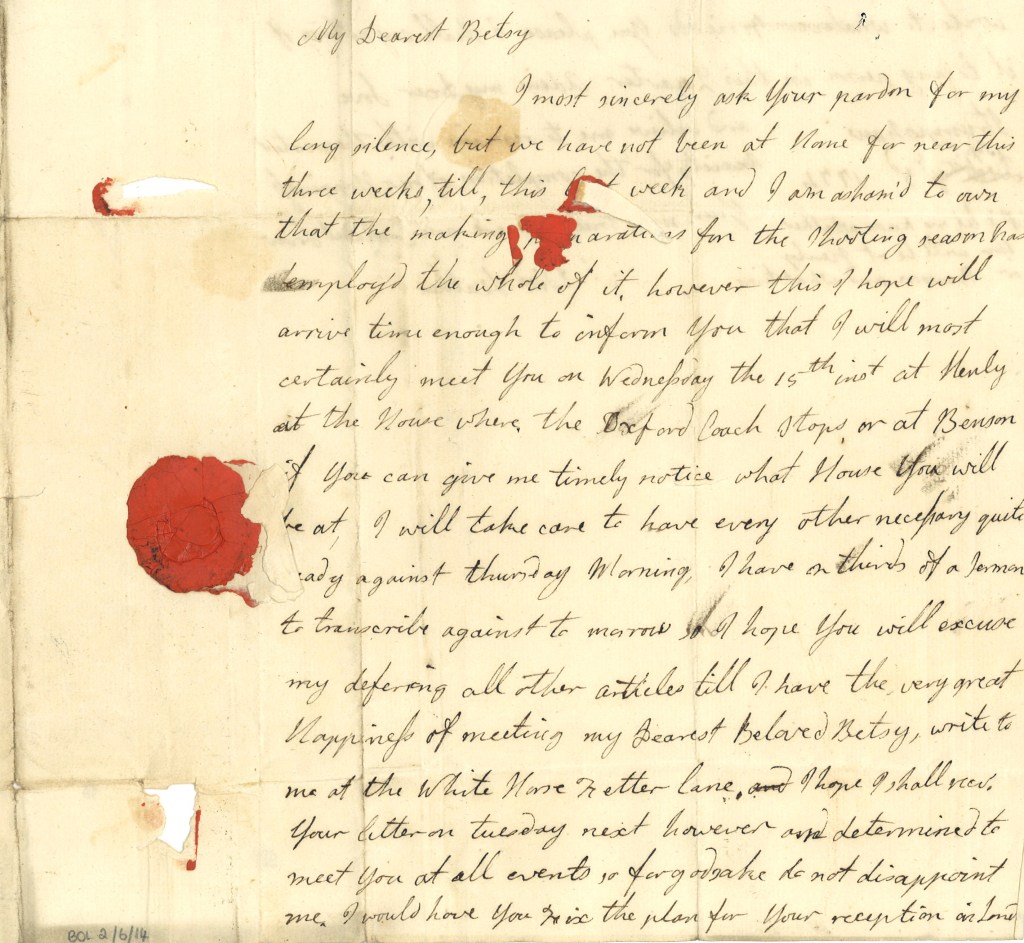 My Dearest Betsy
I most sincerely ask Your pardon for my
long silence, but we have not been at Home for near this
three weeks, till, this week and I am asham'd to own
that the making for the Shooting season has
employ'd the whole of it, however this I hope will
arrive time enough to inform You that I will most
certainly meet You on Wednesday the 15th inst at Henly
at the House where the Oxford Coach stops or at Benson
if You can give me timely notice what House You will
be at, I will take care to have every other necessary quite
ready against thursday Morning, I have thirds of a Sermon
to transcribe against to morrow so I hope You will excuse
my defering all other articles till I have the very great
Happiness of meeting my Dearest Beloved Betsy, write to
me at the White Horse Fetter lane, and I hope I shall recv.
Your letter on Tuesday next however determined to
meet You at all events so for godsake do not disappoint
me. I would have You Fix the plan for Your reception in Lond
BOL 2/6/14